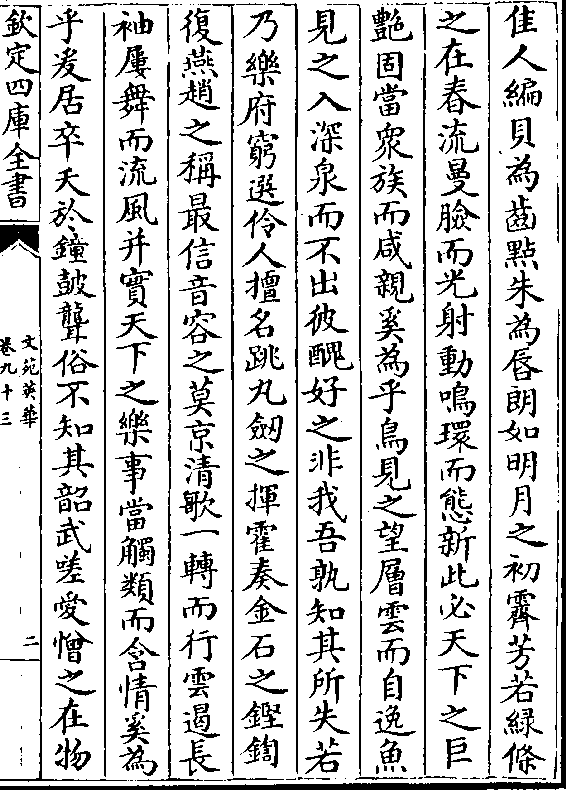 佳人編貝為齒點朱為唇朗如明月之初霽芳若緑條
之在春流曼臉而光射動鳴環而態新此必天下之巨
艷固當衆族而咸親奚為乎鳥見之望層雲而自逸魚
見之入深泉而不出彼醜好之非我吾孰知其所失若
乃樂府窮選伶人擅名跳丸劔之揮霍奏金石之鏗鍧
復燕趙之稱最信音容之莫京清歌一轉而行雲遏長
袖屢舞而流風并實天下之樂事當觸類而含情奚為
乎爰居卒夭於鐘鼓聾俗不知其韶武嗟愛憎之在物
欽定四庫全書
文苑英華
卷九十三
二